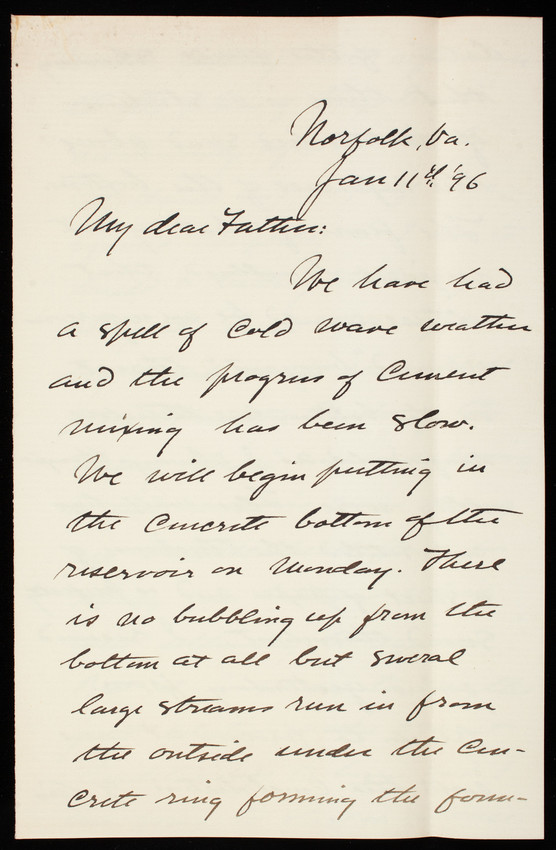 Norfolk, Va.
Jan 11th '96
My dear Father:
We have had
a spell of cold wave weather
and the progress of Cement
mixing has been slow.
We will begin putting in
the concrete bottom of the
reservoir on Monday. There
is no bubbling up from the
bottom at all but several
large streams run in from
the outside under the con-
crete ring forming the foun-